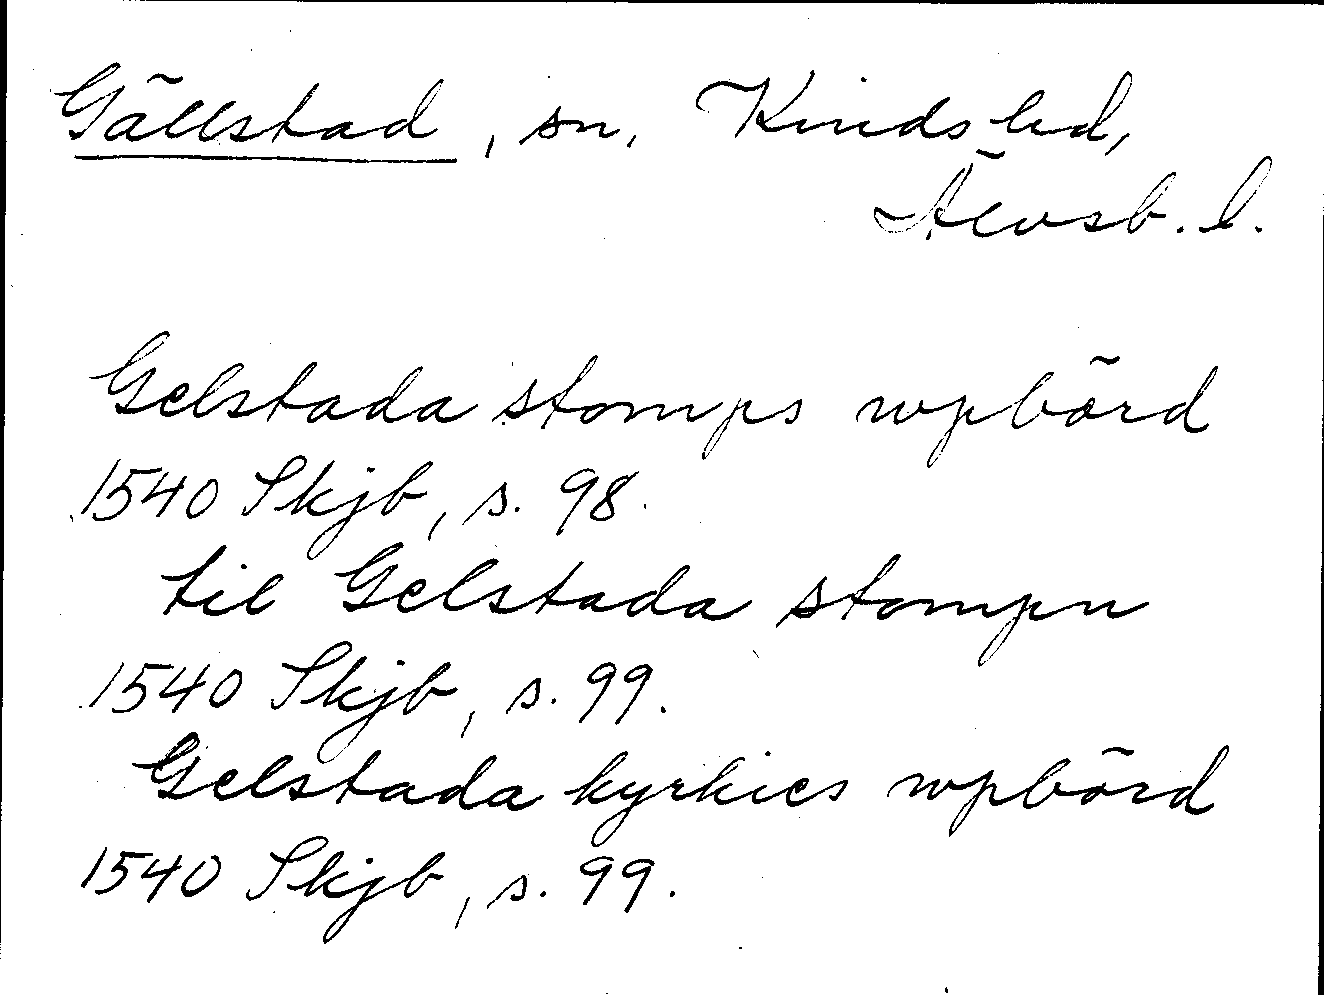 Gällstad, sn, Kinds hd,
Älvsb. l.
Gelstada stomps wpbörd
1540 Skjb, s. 98.
til Gelstada stompn
1540 Skjb, s. 99.
Gelstada kyrkies wpbörd
1540 Skjb, s. 99.